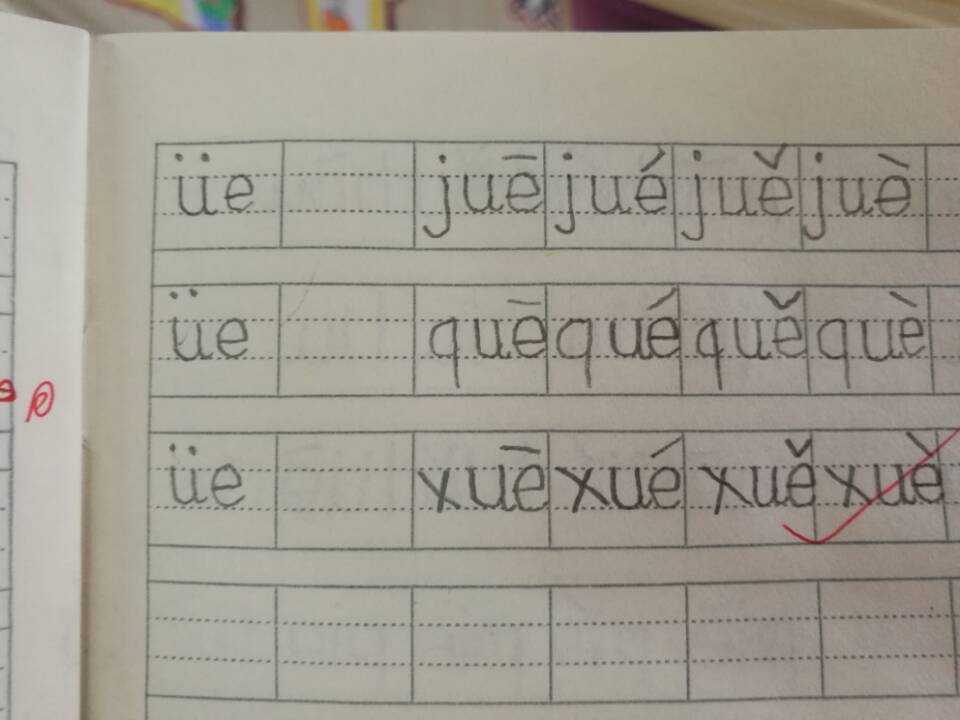 üe juē jué juě juè
üe quē qué quě què
üe xuē xué xuě xuè